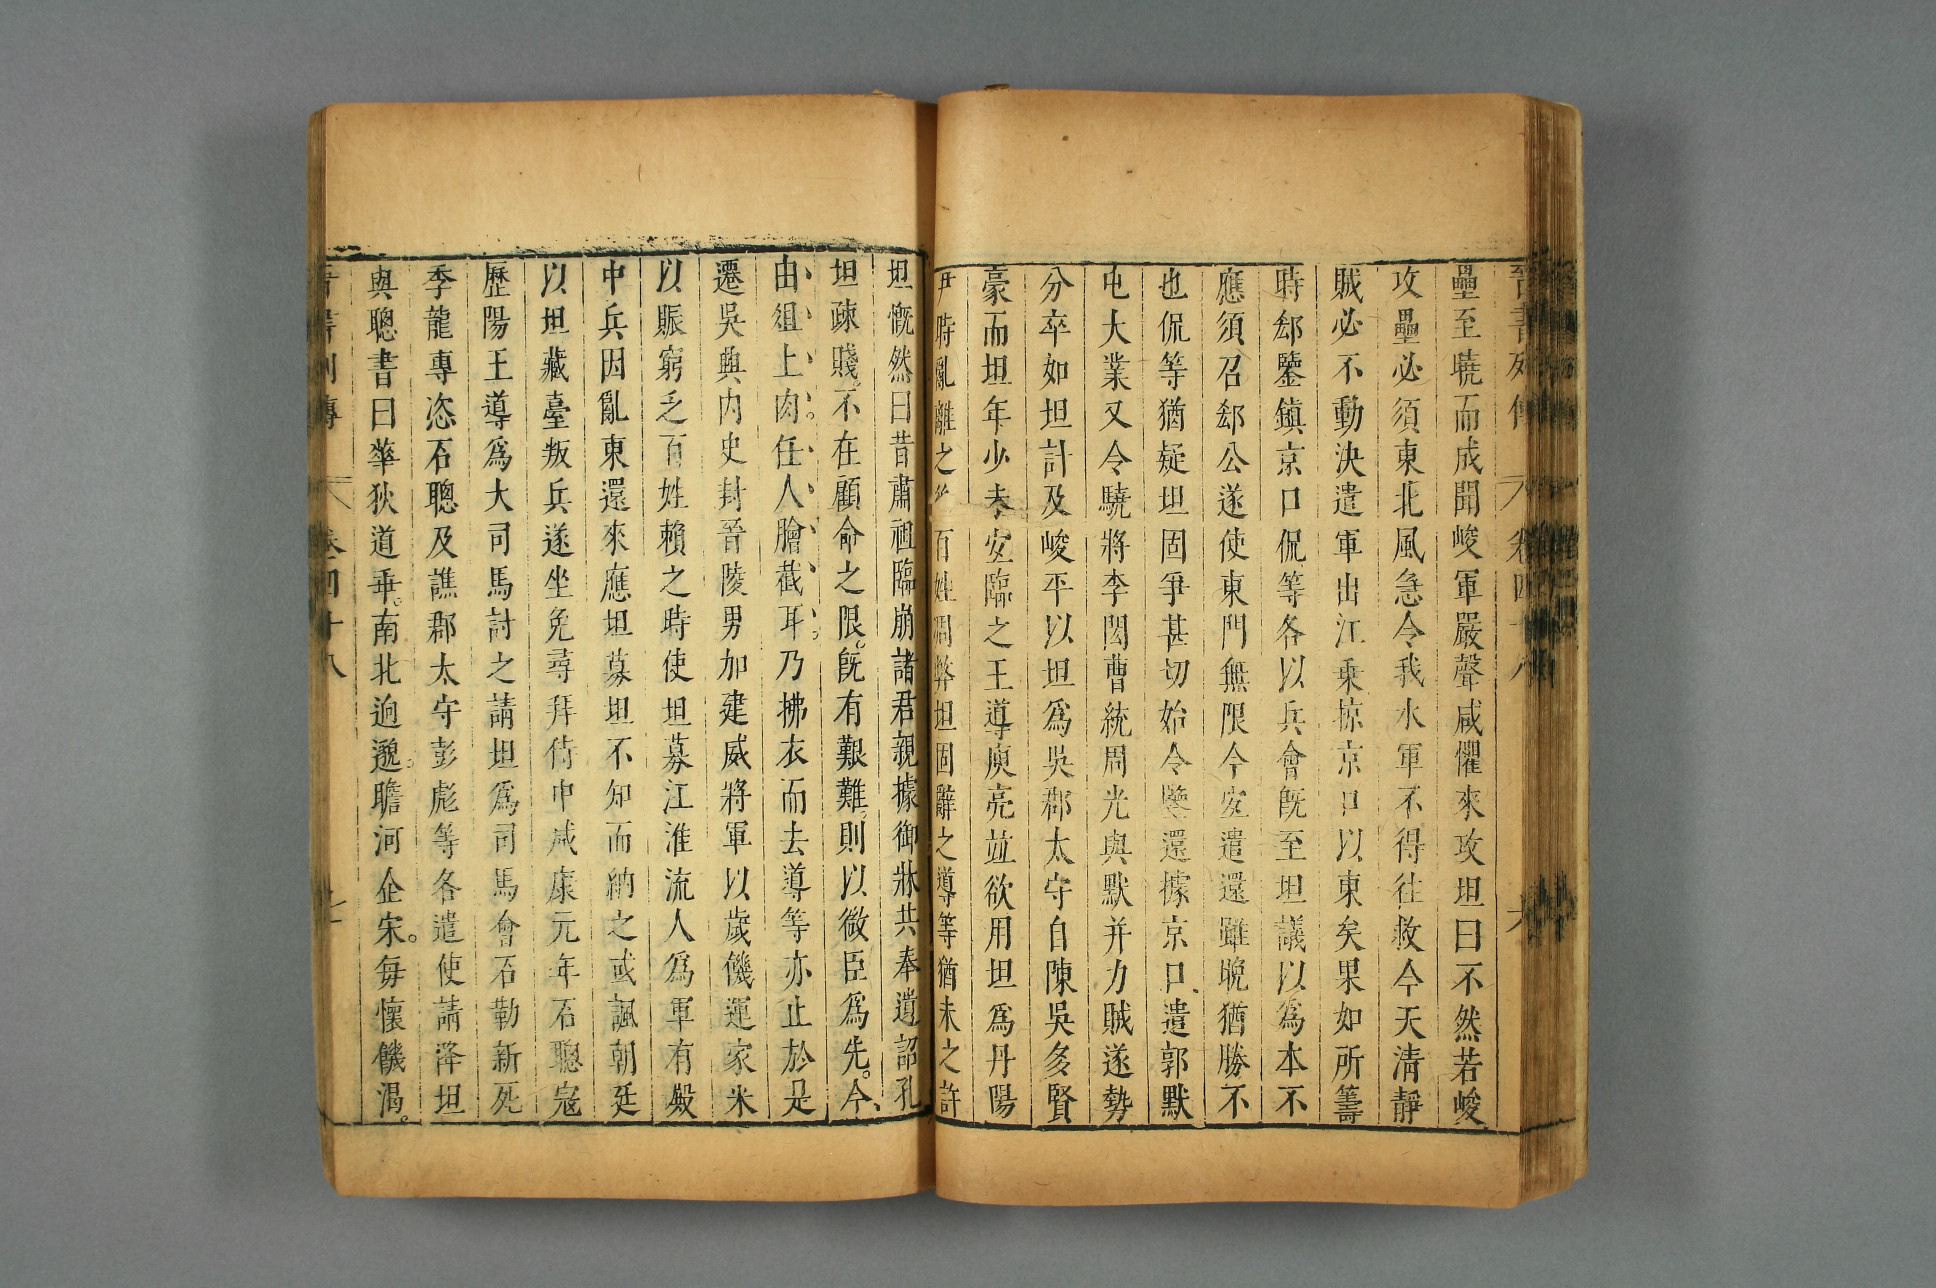 晉書列傳 卷四十八 六
壘至曉而成聞峻軍嚴聲咸懼來攻坦曰不然若峻
攻壘必須東北風急令我水軍不得往救今天清靜
賊必不動決遣軍出江乗掠京口以東矣果如所籌
時郄鑒鎮京口侃等各以兵會旣至坦議以爲本不
應須召郄公遂使東門無限今宜遣還雖晚猶勝不
也侃等猶疑坦固爭甚切始令鑒還據京口遣郭默
屯大業又令驍將李閎曹統周光與默并力賊遂勢
分卒如坦計及峻平以坦爲吳郡太守自陳吳多賢
豪而坦年少未宜臨之王導庾亮並欲用坦爲丹陽
尹時亂離之後百姓凋弊坦固辭之導等猶未之許
坦慨然曰昔肅祖臨崩諸君親據御牀共奉遺詔孔
坦疎賤不在顧命之限。旣有艱難則以微臣爲先。今、
由俎上肉。任人膾截耳。乃拂衣而去導等亦止於是
遷吳興內史封晉陵男加建威將軍以歲饑運家米
以賑窮乏百姓賴之時使坦募江淮流人爲軍有殿
中兵因亂東還來應坦募坦不知而納之或諷朝廷
以坦藏臺叛兵遂坐免尋拜侍中咸康元年石聰寇
歷陽王導爲大司馬討之請坦爲司馬會石勒新死
季龍專恣石聰及譙郡太守彭彪等各遣使請降坦
與聰書曰華狄道乖。南北逈邈。瞻河企宋。每懷饑渴。
晉書列傳 卷四十八 七